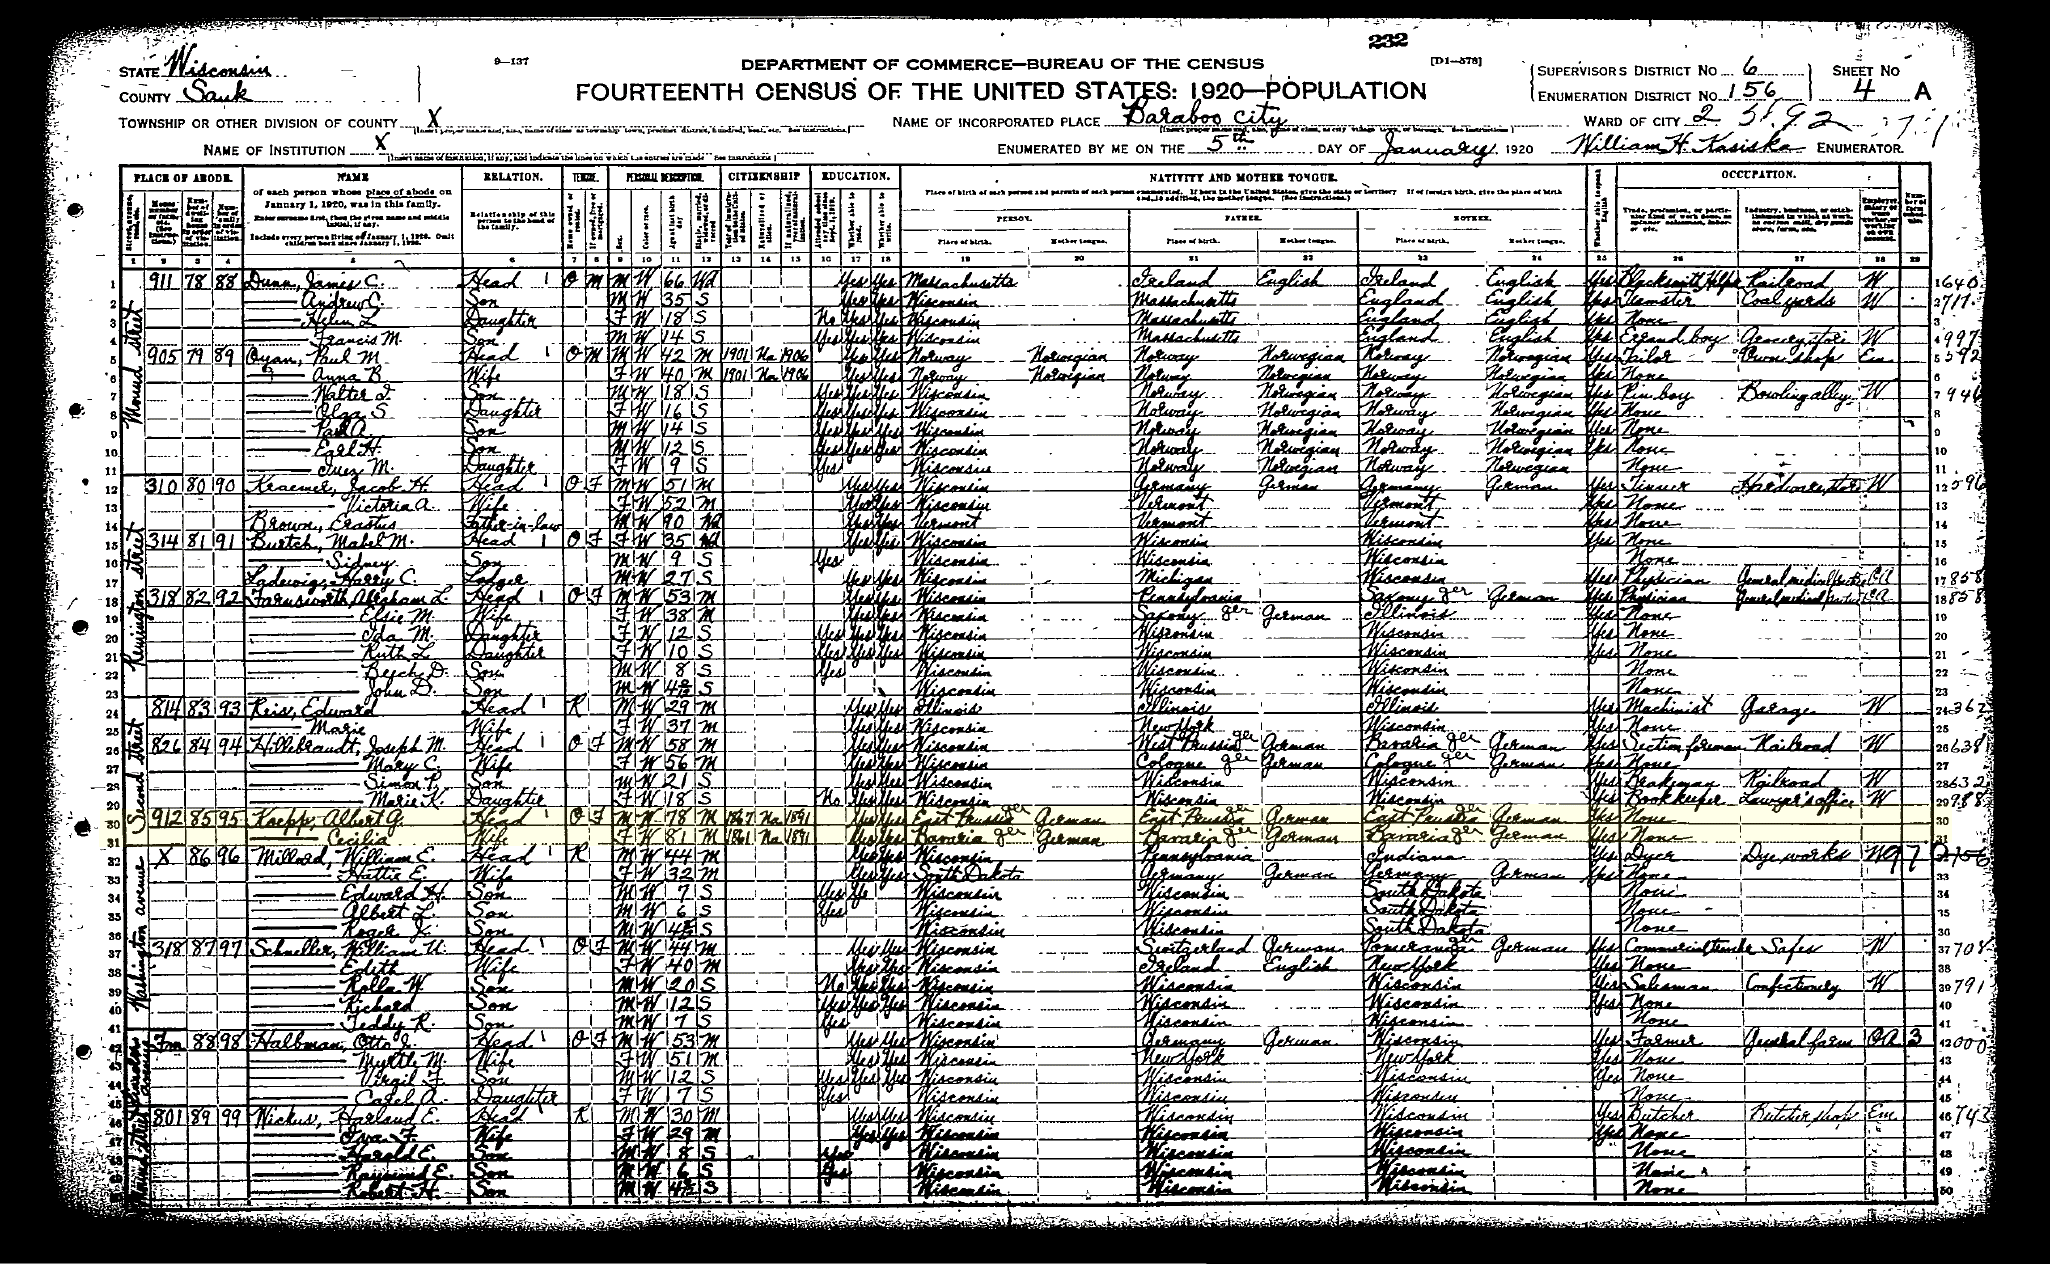 232
STATE Wisconsin
COUNTY Sauk
9—137
DEPARTMENT OF COMMERCE—BUREAU OF THE CENSUS
[D1—578]
FOURTEENTH CENSUS OF THE UNITED STATES: 1920—POPULATION
SUPERVISOR'S DISTRICT NO. 6
ENUMERATION DISTRICT NO. 156
SHEET NO. 4 A
TOWNSHIP OR OTHER DIVISION OF COUNTY X
NAME OF INCORPORATED PLACE Baraboo city
WARD OF CITY 2
NAME OF INSTITUTION X
ENUMERATED BY ME ON THE 5th DAY OF January, 1920 William H. Kasiska ENUMERATOR.
PLACE OF ABODE. NAME RELATION. TENURE. PERSONAL DESCRIPTION. CITIZENSHIP EDUCATION. NATIVITY AND MOTHER TONGUE. OCCUPATION.
of each person whose place of abode on January 1, 1920, was in this family.
Enter surname first, then the given name and middle initial, if any.
Include every person living on January 1, 1920. Omit children born since January 1, 1920.
Relationship of this person to the head of the family.
Place of birth of each person and parents of each person enumerated. If born in the United States, give the state or territory. If of foreign birth, give the place of birth and, in addition, the mother tongue. (See Instructions.)
PERSON. FATHER. MOTHER.
Place of birth. Mother tongue. Place of birth. Mother tongue. Place of birth. Mother tongue.
1 2 3 4 5 6 7 8 9 10 11 12 13 14 15 16 17 18 19 20 21 22 23 24 25 26 27 28 29
Mound street
1 911 78 88 Dunn, James C. Head 1 O M M W 66 Wd Yes Yes Massachusetts Ireland English Ireland English Yes Blacksmith Helper Railroad W 1
2 Andrew C. Son M W 35 S Yes Yes Wisconsin Massachusetts England English Yes Teamster Coal yards W 2
3 Helen L. Daughter F W 18 S No Yes Yes Wisconsin Massachusetts England English Yes None 3
4 Francis M. Son M W 14 S Yes Yes Yes Wisconsin Massachusetts England English Yes Errand boy Grocery store W 4
5 905 79 89 Oyan, Paul M. Head 1 O M M W 42 M 1901 Na 1906 Yes Yes Norway Norwegian Norway Norwegian Norway Norwegian Yes Tailor Own shop Em 5
6 Anna B. Wife F W 40 M 1901 Na 1906 Yes Yes Norway Norwegian Norway Norwegian Norway Norwegian Yes None 6
7 Walter I. Son M W 18 S Yes Yes Yes Wisconsin Norway Norwegian Norway Norwegian Yes Pin boy Bowling alley W 7
8 Olga S. Daughter F W 16 S Yes Yes Yes Wisconsin Norway Norwegian Norway Norwegian Yes None 8
9 Paul A. Son M W 14 S Yes Yes Yes Wisconsin Norway Norwegian Norway Norwegian Yes None 9
10 Earl H. Son M W 12 S Yes Yes Yes Wisconsin Norway Norwegian Norway Norwegian Yes None 10
11 Inez M. Daughter F W 9 S Yes Wisconsin Norway Norwegian Norway Norwegian None 11
Remington street
12 310 80 90 Kraemer, Jacob H. Head 1 O F M W 51 M Yes Yes Wisconsin Germany German Germany German Yes Tinner Hardware store W 12
13 Victoria A. Wife F W 52 M Yes Yes Wisconsin Vermont Vermont Yes None 13
14 Brown, Erastus Father-in-law M W 90 Wd Yes Yes Vermont Vermont Vermont Yes None 14
15 314 81 91 Burtch, Mabel M. Head 1 O F F W 35 Wd Yes Yes Wisconsin Wisconsin Wisconsin Yes None 15
16 Sidney Son M W 9 S Yes Wisconsin Wisconsin Wisconsin None 16
17 Ladewig, Harry C. Lodger M W 27 S Yes Yes Wisconsin Michigan Wisconsin Yes Physician General medical practice OA 17 858
18 318 82 92 Farnsworth, Abraham L. Head 1 O F M W 53 M Yes Yes Wisconsin Pennsylvania Saxony ger German Yes Physician General medical practice OA 18 858
19 Elsie M. Wife F W 38 M Yes Yes Wisconsin Saxony ger German Illinois Yes None 19
20 Ida M. Daughter F W 12 S Yes Yes Yes Wisconsin Wisconsin Wisconsin Yes None 20
21 Ruth L. Daughter F W 10 S Yes Yes Yes Wisconsin Wisconsin Wisconsin Yes None 21
22 Beech D. Son M W 8 S Yes Wisconsin Wisconsin Wisconsin None 22
23 John D. Son M W S Wisconsin Wisconsin Wisconsin None 23
Second street
24 814 83 93 Reis, Edward Head 1 R M W 29 M Yes Yes Illinois Illinois Illinois Yes Machinist Garage W 24 362
25 Marie Wife F W 37 M Yes Yes Wisconsin New York Wisconsin Yes None 25
26 826 84 94 Hillebrandt, Joseph M. Head 1 O F M W 58 M Yes Yes Wisconsin West Prussia ger German Bavaria ger German Yes Section foreman Railroad W 26 638
27 Mary C. Wife F W 56 M Yes Yes Wisconsin Cologne ger German Cologne ger German Yes None 27
28 Simon P. Son M W 21 S Yes Yes Wisconsin Wisconsin Wisconsin Yes Brakeman Railroad W 28 632
29 Marie K. Daughter F W 18 S No Yes Yes Wisconsin Wisconsin Wisconsin Yes Bookkeeper Lawyer's office W 29 988
30 912 85 95 Koepp, Albert G. Head 1 O F M W 78 M 1867 Na 1891 Yes Yes East Prussia ger German East Prussia ger German East Prussia ger German Yes None 30
31 Cecilia Wife F W 81 M 1861 Na 1891 Yes Yes Bavaria ger German Bavaria ger German Bavaria ger German Yes None 31
Washington avenue
32 X 86 96 Millard, William E. Head 1 R M W 44 M Yes Yes Wisconsin Pennsylvania Indiana Yes Dyer Dye works
33 Hattie E. Wife F W 32 M Yes Yes South Dakota Germany German Germany German Yes None 33
34 Edward H. Son M W 7 S Yes Yes Wisconsin Wisconsin South Dakota None 34
35 Albert L. Son M W 6 S Yes Wisconsin Wisconsin South Dakota None 35
36 Roger J. Son M W S Wisconsin Wisconsin South Dakota None 36
37 318 87 97 Schneller, William U. Head 1 O F M W 44 M Yes Yes Wisconsin Switzerland German Pomerania ger German Yes Commercial traveler Safes W 37 708
38 Edith Wife F W 40 M Yes Yes Wisconsin Ireland English New York Yes None 38
39 Rolla W. Son M W 20 S No Yes Yes Wisconsin Wisconsin Wisconsin Yes Salesman Confectionery W 39 791
40 Richard Son M W 12 S Yes Yes Yes Wisconsin Wisconsin Wisconsin Yes None 40
41 Teddy R. Son M W 7 S Yes Wisconsin Wisconsin Wisconsin None 41
42 Fm 88 98 Halbman, Otto J. Head 1 O F M W 53 M Yes Yes Wisconsin Germany German Wisconsin Yes Farmer General farm OA 3 42 000
43 Myrtle M. Wife F W 51 M Yes Yes Wisconsin New York New York Yes None 43
44 Virgil F. Son M W 12 S Yes Yes Yes Wisconsin Wisconsin Wisconsin Yes None 44
45 Carol A. Daughter F W 7 S Yes Wisconsin Wisconsin Wisconsin None 45
46 801 89 99 Wickus, Harland E. Head R M W 30 M Yes Yes Wisconsin Wisconsin Wisconsin Yes Butcher Butcher shop Em 46 743
47 Iva F. Wife F W 29 M Yes Yes Wisconsin Wisconsin Wisconsin Yes None 47
48 Harold E. Son M W 8 S Yes Wisconsin Wisconsin Wisconsin None 48
49 Raymond E. Son M W 6 S Yes Wisconsin Wisconsin Wisconsin None 49
50 Robert H. Son M W S Wisconsin Wisconsin Wisconsin None 50